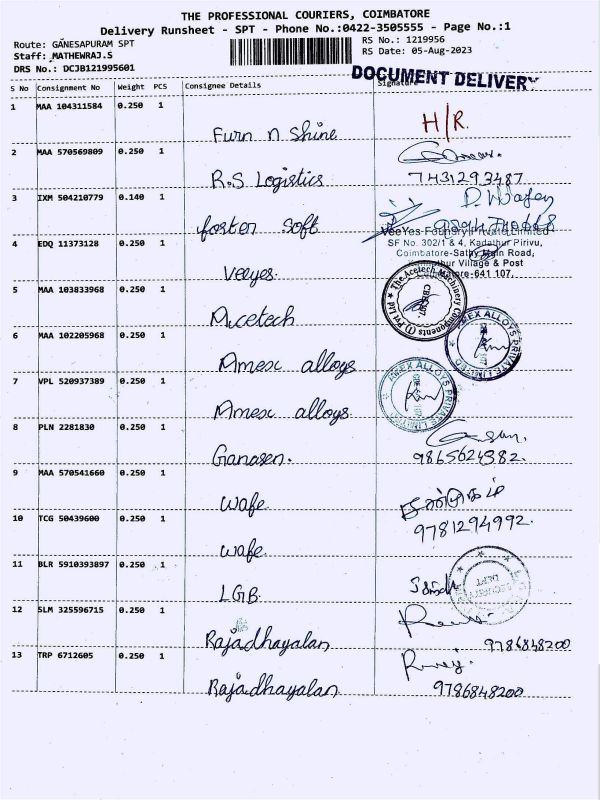 THE PROFESSIONAL COURIERS, COIMBATORE
Delivery Runsheet - SPT - Phone No.:0422-3505555 - Page No.:1
Route: GANESAPURAM SPT
RS No.: 1219956
Staff: MATHEWRAJ.S
RS Date: 05-Aug-2023
DRS No.: DCJB121995601
DOCUMENT DELIVERY
S No Consignment No Weight PCS Consignee Details Signature
1 MAA 104311584 0.250 1
Furn n Shine H/R.
2 MAA 570569809 0.250 1
R.S Logistics 7431293487
3 IXM 504210779 0.140 1
foster soft
VeeYes Foundry Private Limited
4 EDQ 11373128 0.250 1
SF No. 302/1 & 4, Kadathur Pirivu,
Coimbatore-Sathy Main Road,
Village & Post
Veeyes
641 107.
5 MAA 103833968 0.250 1
The Acetech Machinery Components (I) Pvt Ltd
Micetech
6 MAA 102205968 0.250 1
AMEX ALLOYS PRIVATE LIMITED
Amex alloys
7 VPL 520937389 0.250 1
AMEX ALLOYS PRIVATE LIMITED
Amex alloys
8 PLN 2281830 0.250 1
Ganasen. 9865624382.
9 MAA 570541660 0.250 1
wafe
10 TCG 50439600 0.250 1
9781294992.
wafe
11 BLR 5910393897 0.250 1
LGB
12 SLM 325596715 0.250 1
Rajadhayalan 9786848200
13 TRP 6712605 0.250 1
Rajadhayalan 9786848200